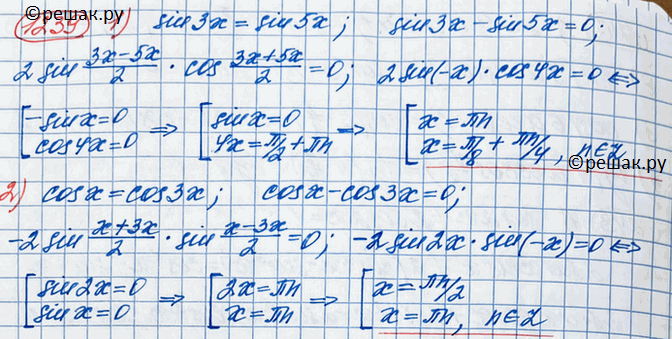 ©решак.ру
1235 1) sin3x = sin5x; sin3x - sin5x = 0;
2 sin (3x-5x)/2 · cos (3x+5x)/2 = 0; 2 sin(-x) · cos4x = 0 ⇔
[-sinx = 0 ⇒ [sinx = 0 ⇒ [x = πn
cos4x = 0 4x = π/2 + πn x = π/8 + πn/4, n∈Z
©решак.ру
2) cosx = cos3x; cosx - cos3x = 0;
-2 sin (x+3x)/2 · sin (x-3x)/2 = 0; -2 sin2x · sin(-x) = 0 ⇔
[sin2x = 0 ⇒ [2x = πn ⇒ [x = πn/2
sinx = 0 x = πn x = πn, n∈Z